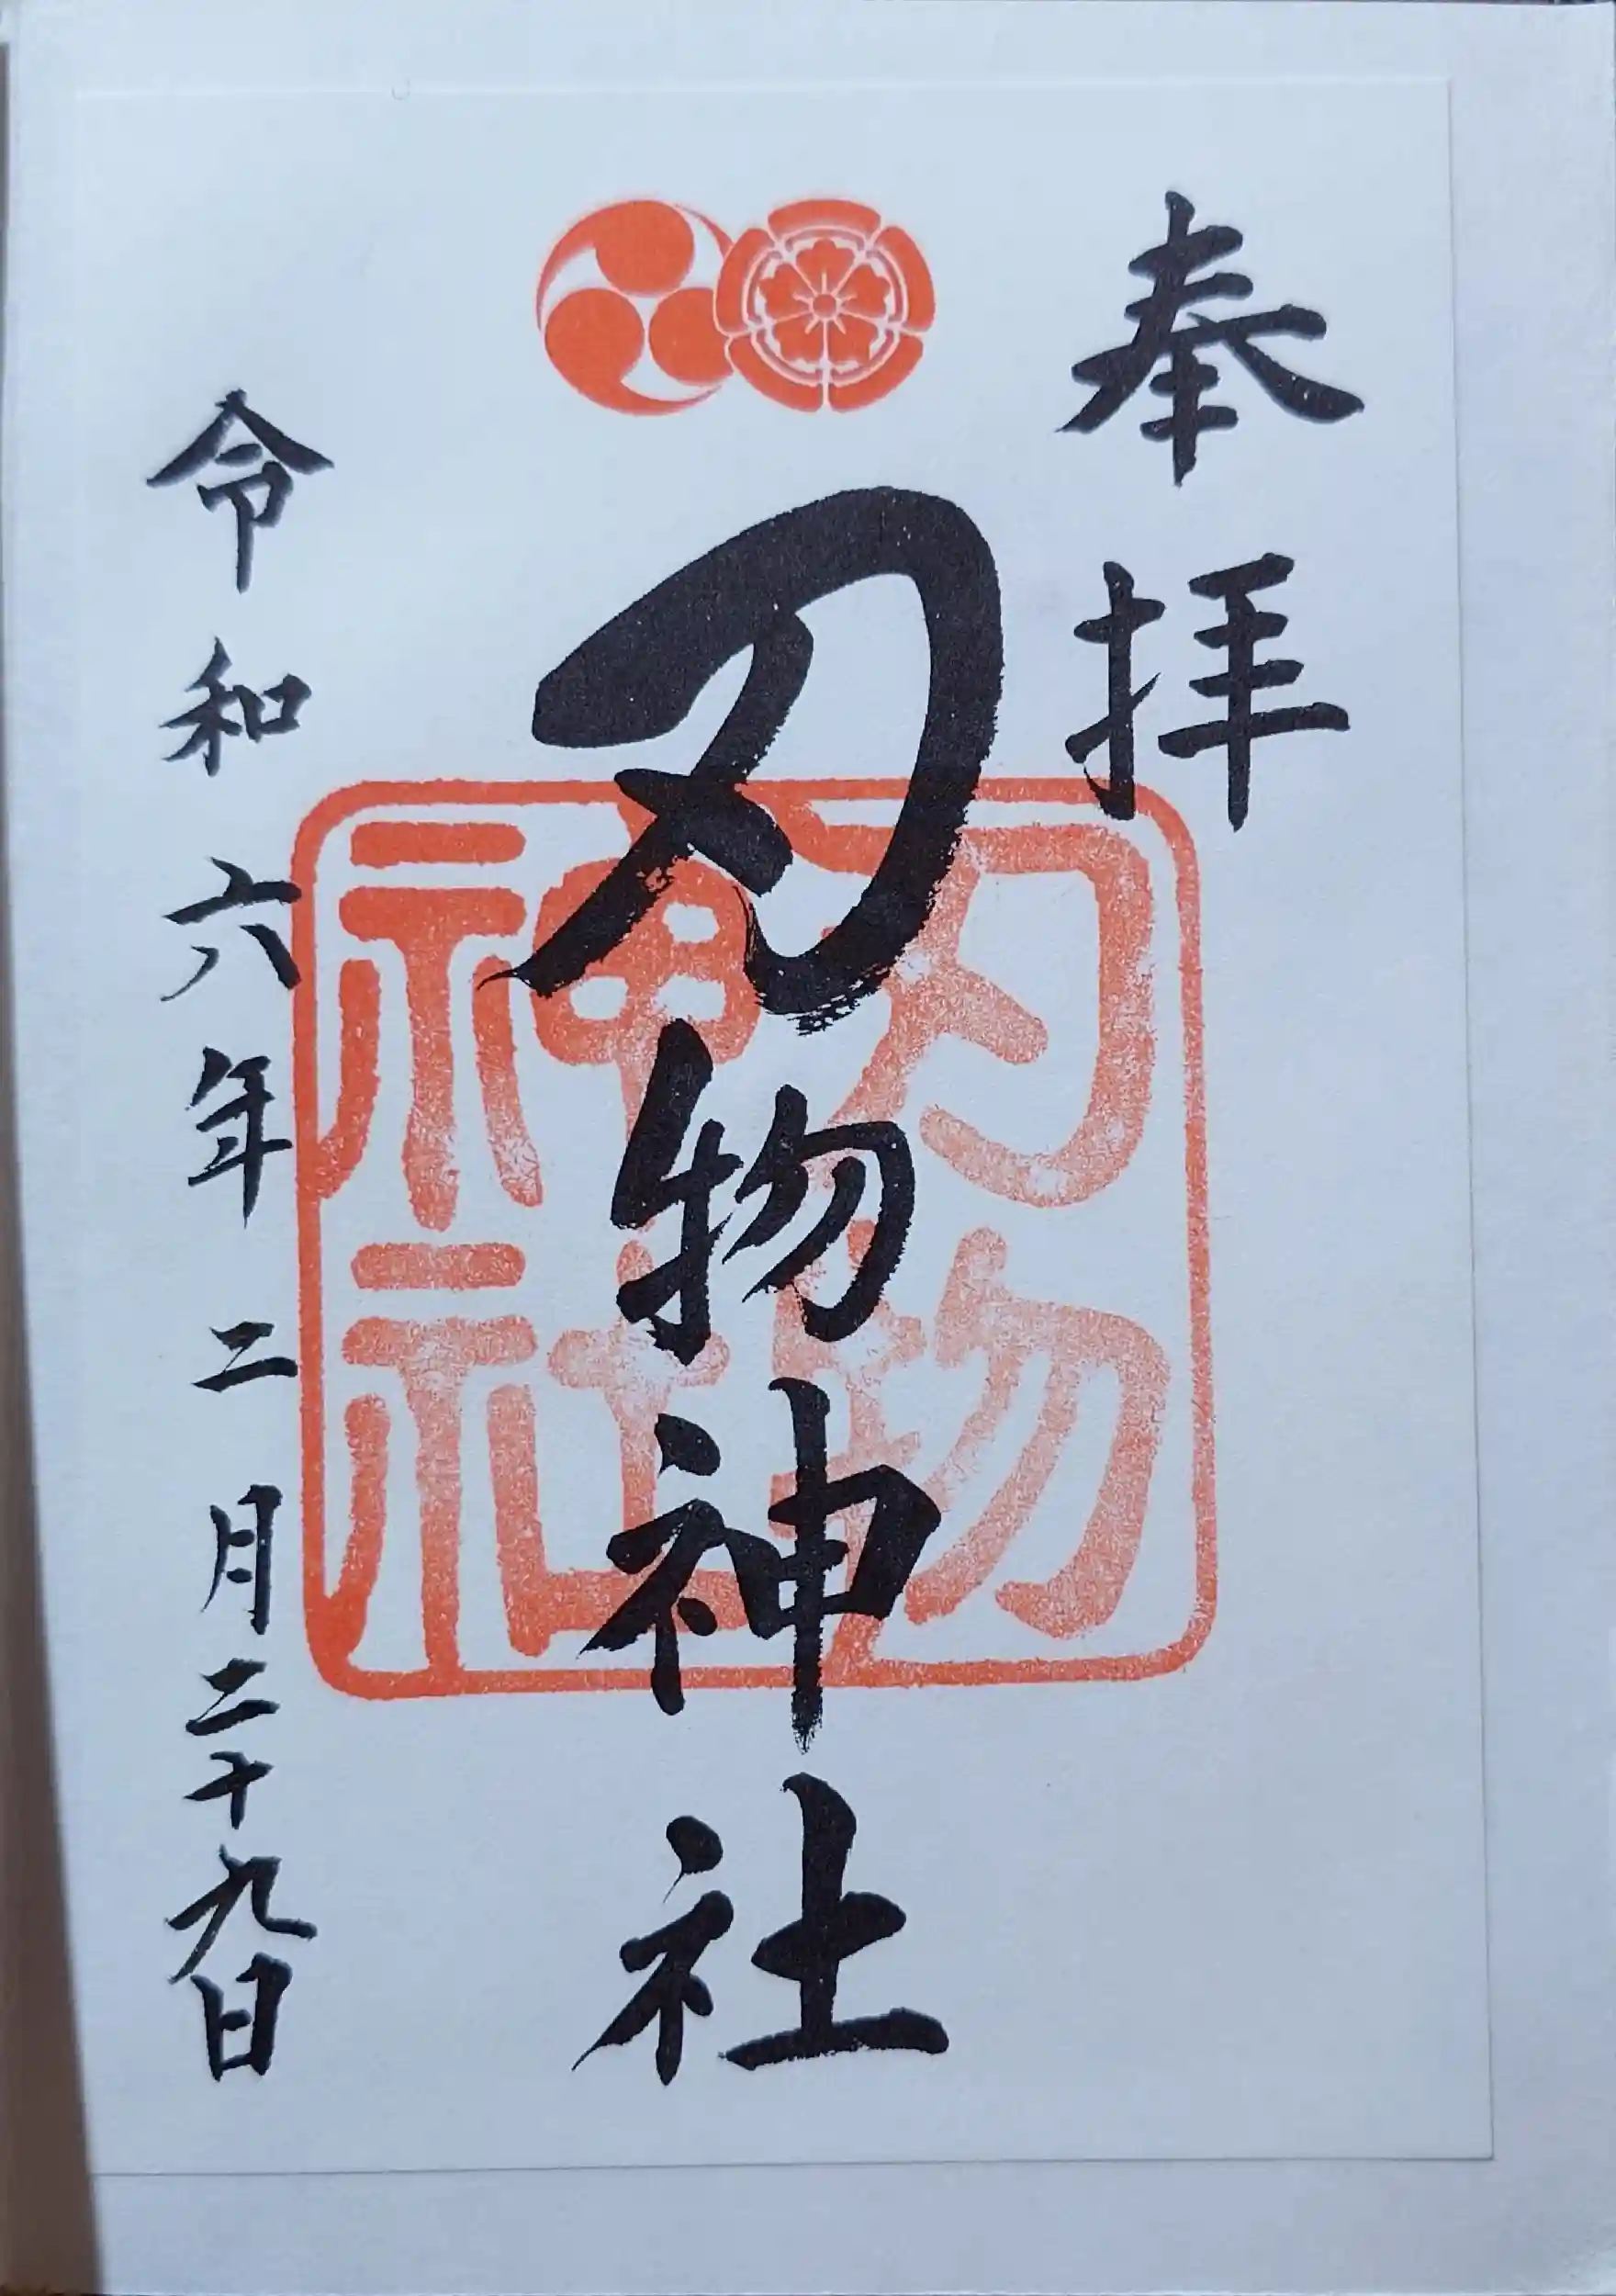 奉拝
刃物神社
刃物神社
令和六年二月二十九日